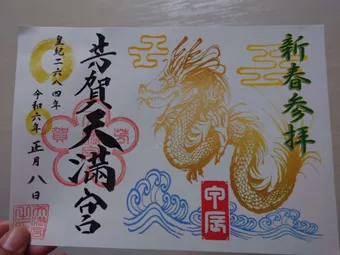 新春参拝
甲辰
芳賀天満宮
皇紀二六八四年
令和六年正月八日